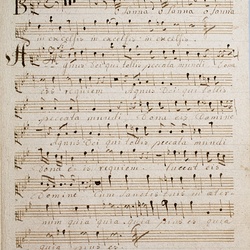 Osanna Osanna
in excelsis in excelsis in excelsis
Agnus Dei qui tollis peccata mundi Dona
eis requiem Agnus Dei qui tollis
peccata mundi Dona eis Domine
Agnus Dei qui tollis peccata mundi
Dona eis requiem luceat eis
Domine cum Sanctis
quia quia quia pius es quia
quia pius es